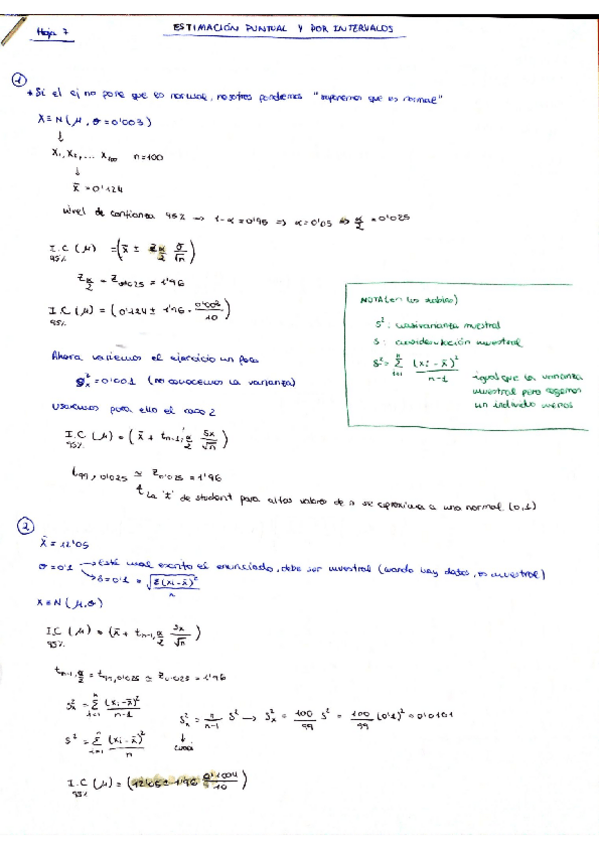 Hoja 7
ESTIMACIÓN PUNTUAL Y POR INTERVALOS
①
* Si el ej no pone que es normal, nosotros pondremos "suponemos que es normal"
X≡N(μ, σ=0'003)
↓
X₁, X₂, ... X₁₀₀ n=100
↓
x̄=0'124
Nivel de confianza 95% → 1-α=0'95 ⇒ α=0'05 ⇒ α/2=0'025
I.C 95% (μ) = (x̄ ± Z α/2 σ/√n)
Z α/2 = Z 0'025 = 1'96
I.C 95% (μ) = (0'124 ± 1'96 · 0'003/10)
NOTA (en las tablas)
S²: cuasivarianza muestral
S: cuasidesviación muestral
S² = Σ i=1 n (xi - x̄)²/n-1
igual que la varianza
muestral pero cogemos
un individuo menos
Ahora variemos el ejercicio un poco
S²x = 0'001 (no conocemos la varianza)
Usaremos para ello el caso 2
I.C 95% (μ) = (x̄ ± t n-1, α/2 Sx/√n)
t 99, 0'025 ≃ Z 0'025 = 1'96
↑ La 't' de student para altos valores de n se aproxima a una normal (0,1)
②
x̄ = 12'05
σ=0'1 → Está mal escrito el enunciado, debe ser muestral (cuando hay datos, es muestral)
→ s=0'1 = √Σ(xi-x̄)²/n
X≡N(μ,σ)
I.C 95% (μ) = (x̄ ± t n-1, α/2 Sx/√n)
t n-1, α/2 = t 99, 0'025 ≃ Z 0'025 = 1'96
S²x = Σ i=1 n (xi-x̄)²/n-1
S²x = n/n-1 S² → S²x = 100/99 S² = 100/99 (0'1)² = 0'0101
↓
cuasi
S² = Σ i=1 n (xi-x̄)²/n
I.C 95% (μ) = (12'05 ± 1'96 0'1004/10)